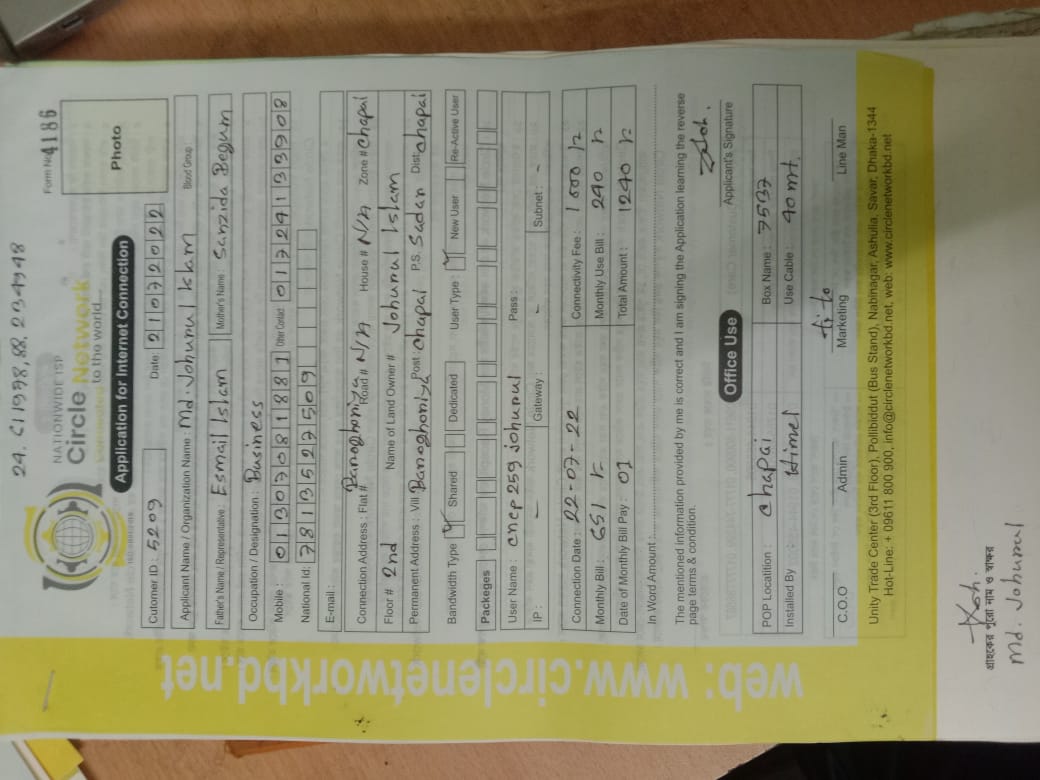 24, C11998,88,234948
NATIONWIDE ISP
Circle Network
to the world...
Form No 4186
Application for Internet Connection
Photo
Cutomer ID : 5209 Date: 21072022
Applicant Name / Organization Name : Md. Johurul Islam Blood Group :
Father's Name / Representative : Esmail Islam Mother's Name : Sanzida Begum
Occupation / Designation : Business
Mobile : 01303081881 Other Contact 01324133908
National Id: 7813523509
E-mail :
Connection Address : Flat # Road # N/A House # N/A Zone # chapai
Floor # 2nd Name of Land Owner # Johurul Islam
Permanent Address : Vill Post: chapai P.S. Sadar Dist: chapai
Bandwidth Type : Shared Dedicated User Type : New User Re-Active User
Packeges
User Name : cnep259 johurul Pass :
IP : – Gateway : – – Subnet : –
Connection Date : 22-07-22 Connectivity Fee : 1000
Monthly Bill : 651 Monthly Use Bill : 240
Date of Monthly Bill Pay : 01 Total Amount : 1240
In Word Amount :
The mentioned information provided by me is correct and I am signing the Application learning the reverse
page terms & condition.
Applicant's Signature
Office Use
POP Locatition : chapai Box Name : 7537
Installed By : Himel Use Cable : 40 mt.
C.O.O Admin Marketing Line Man
Unity Trade Center (3rd Floor), Pollibiddut (Bus Stand), Nabinagar, Ashulia, Savar, Dhaka-1344
Hot-Line: + 09611 800 900, info@circlenetworkbd.net, web: www.circlenetworkbd.net
web: www.circlenetworkbd.net
গ্রাহকের পুরো নাম ও স্বাক্ষর
Md. Johurul